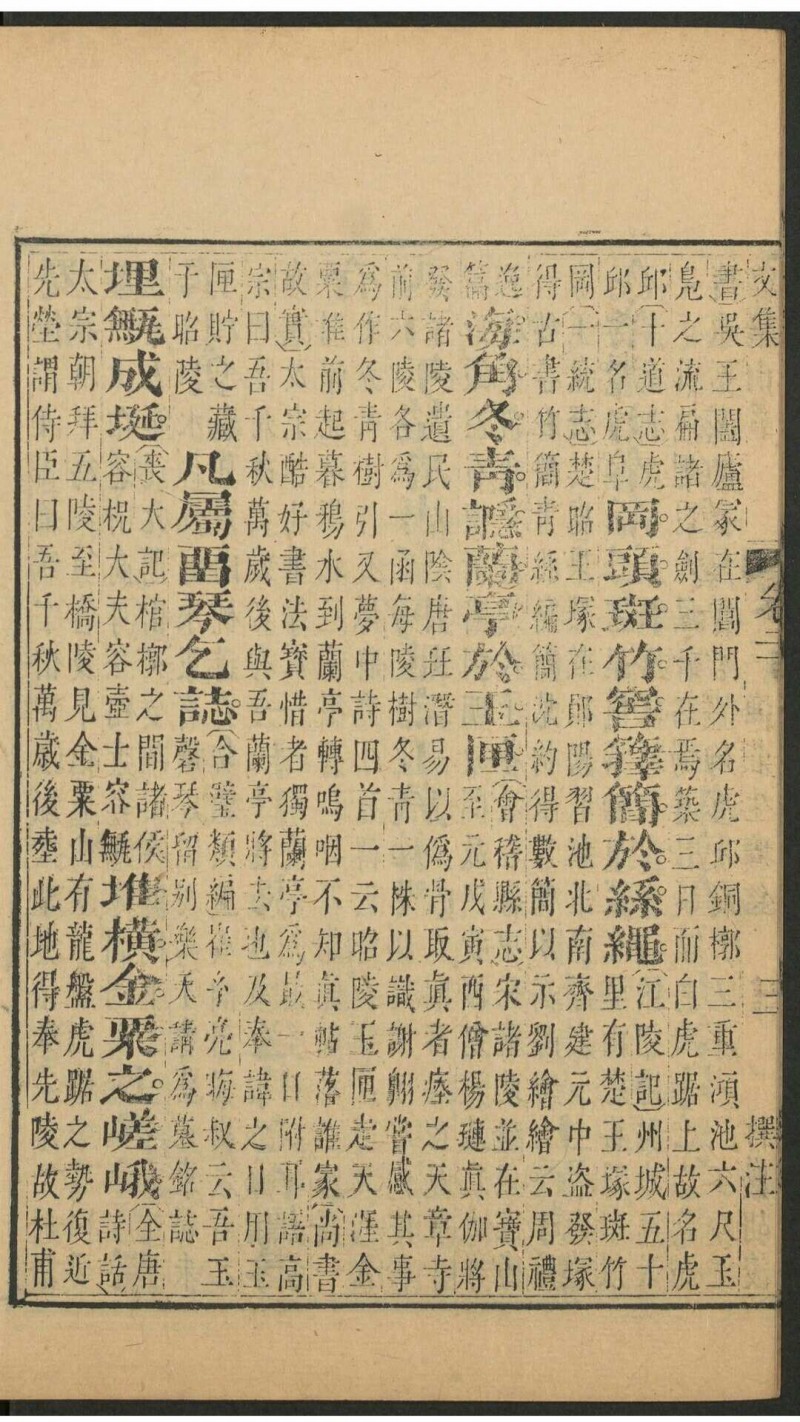 文集 卷二 三 撰注
書吳王闔廬冢在閶門外名虎邱銅槨三重澒池六尺玉
鳧之流扁諸之劍三千在焉築三日而白虎踞上故名虎
邱(十道志)虎
邱一名虎阜
岡頭斑竹窨籜簡於絲繩
(江陵記)州城五十
里有楚王塚斑竹
岡(一統志)楚昭王塚在鄖陽習池北南齊建元中盜發塚
得古書竹簡青絲編簡沈約得數簡以示劉繪繪云周禮
逸
篇
海角冬青謳蘭亭於玉匣
(會稽縣志)宋諸陵並在寶山
至元戊寅西僧楊璉眞伽將
發諸陵遺民山陰唐玨潛易以僞骨取眞者瘞之天章寺
前六陵各爲一函每陵樹冬青一株以識謝翺嘗感其事
爲作冬青樹引又夢中詩四首一云昭陵玉匣走天涯金
粟堆前起暮鴉水到蘭亭轉嗚咽不知眞帖落誰家(尚書
故實)太宗酷好書法寶惜者獨蘭亭爲最一日附耳語高
宗曰吾千秋萬歲後與吾蘭亭將去也及奉諱之日用玉
匣貯之藏
于昭陵
凡屬畱琴乞誌
(合璧類編)崔玄亮晦叔云吾玉
磬琴留别樂天請爲墓銘誌
埋甒成埏
(喪大記)棺槨之間諸侯
容柷大夫容壺士容甒
堆橫金粟之嵯峨
(全唐
詩話)
太宗朝拜五陵至橋陵見金粟山有龍盤虎踞之勢復近
先塋謂侍臣曰吾千秋萬歲後塟此地得奉先陵故杜甫